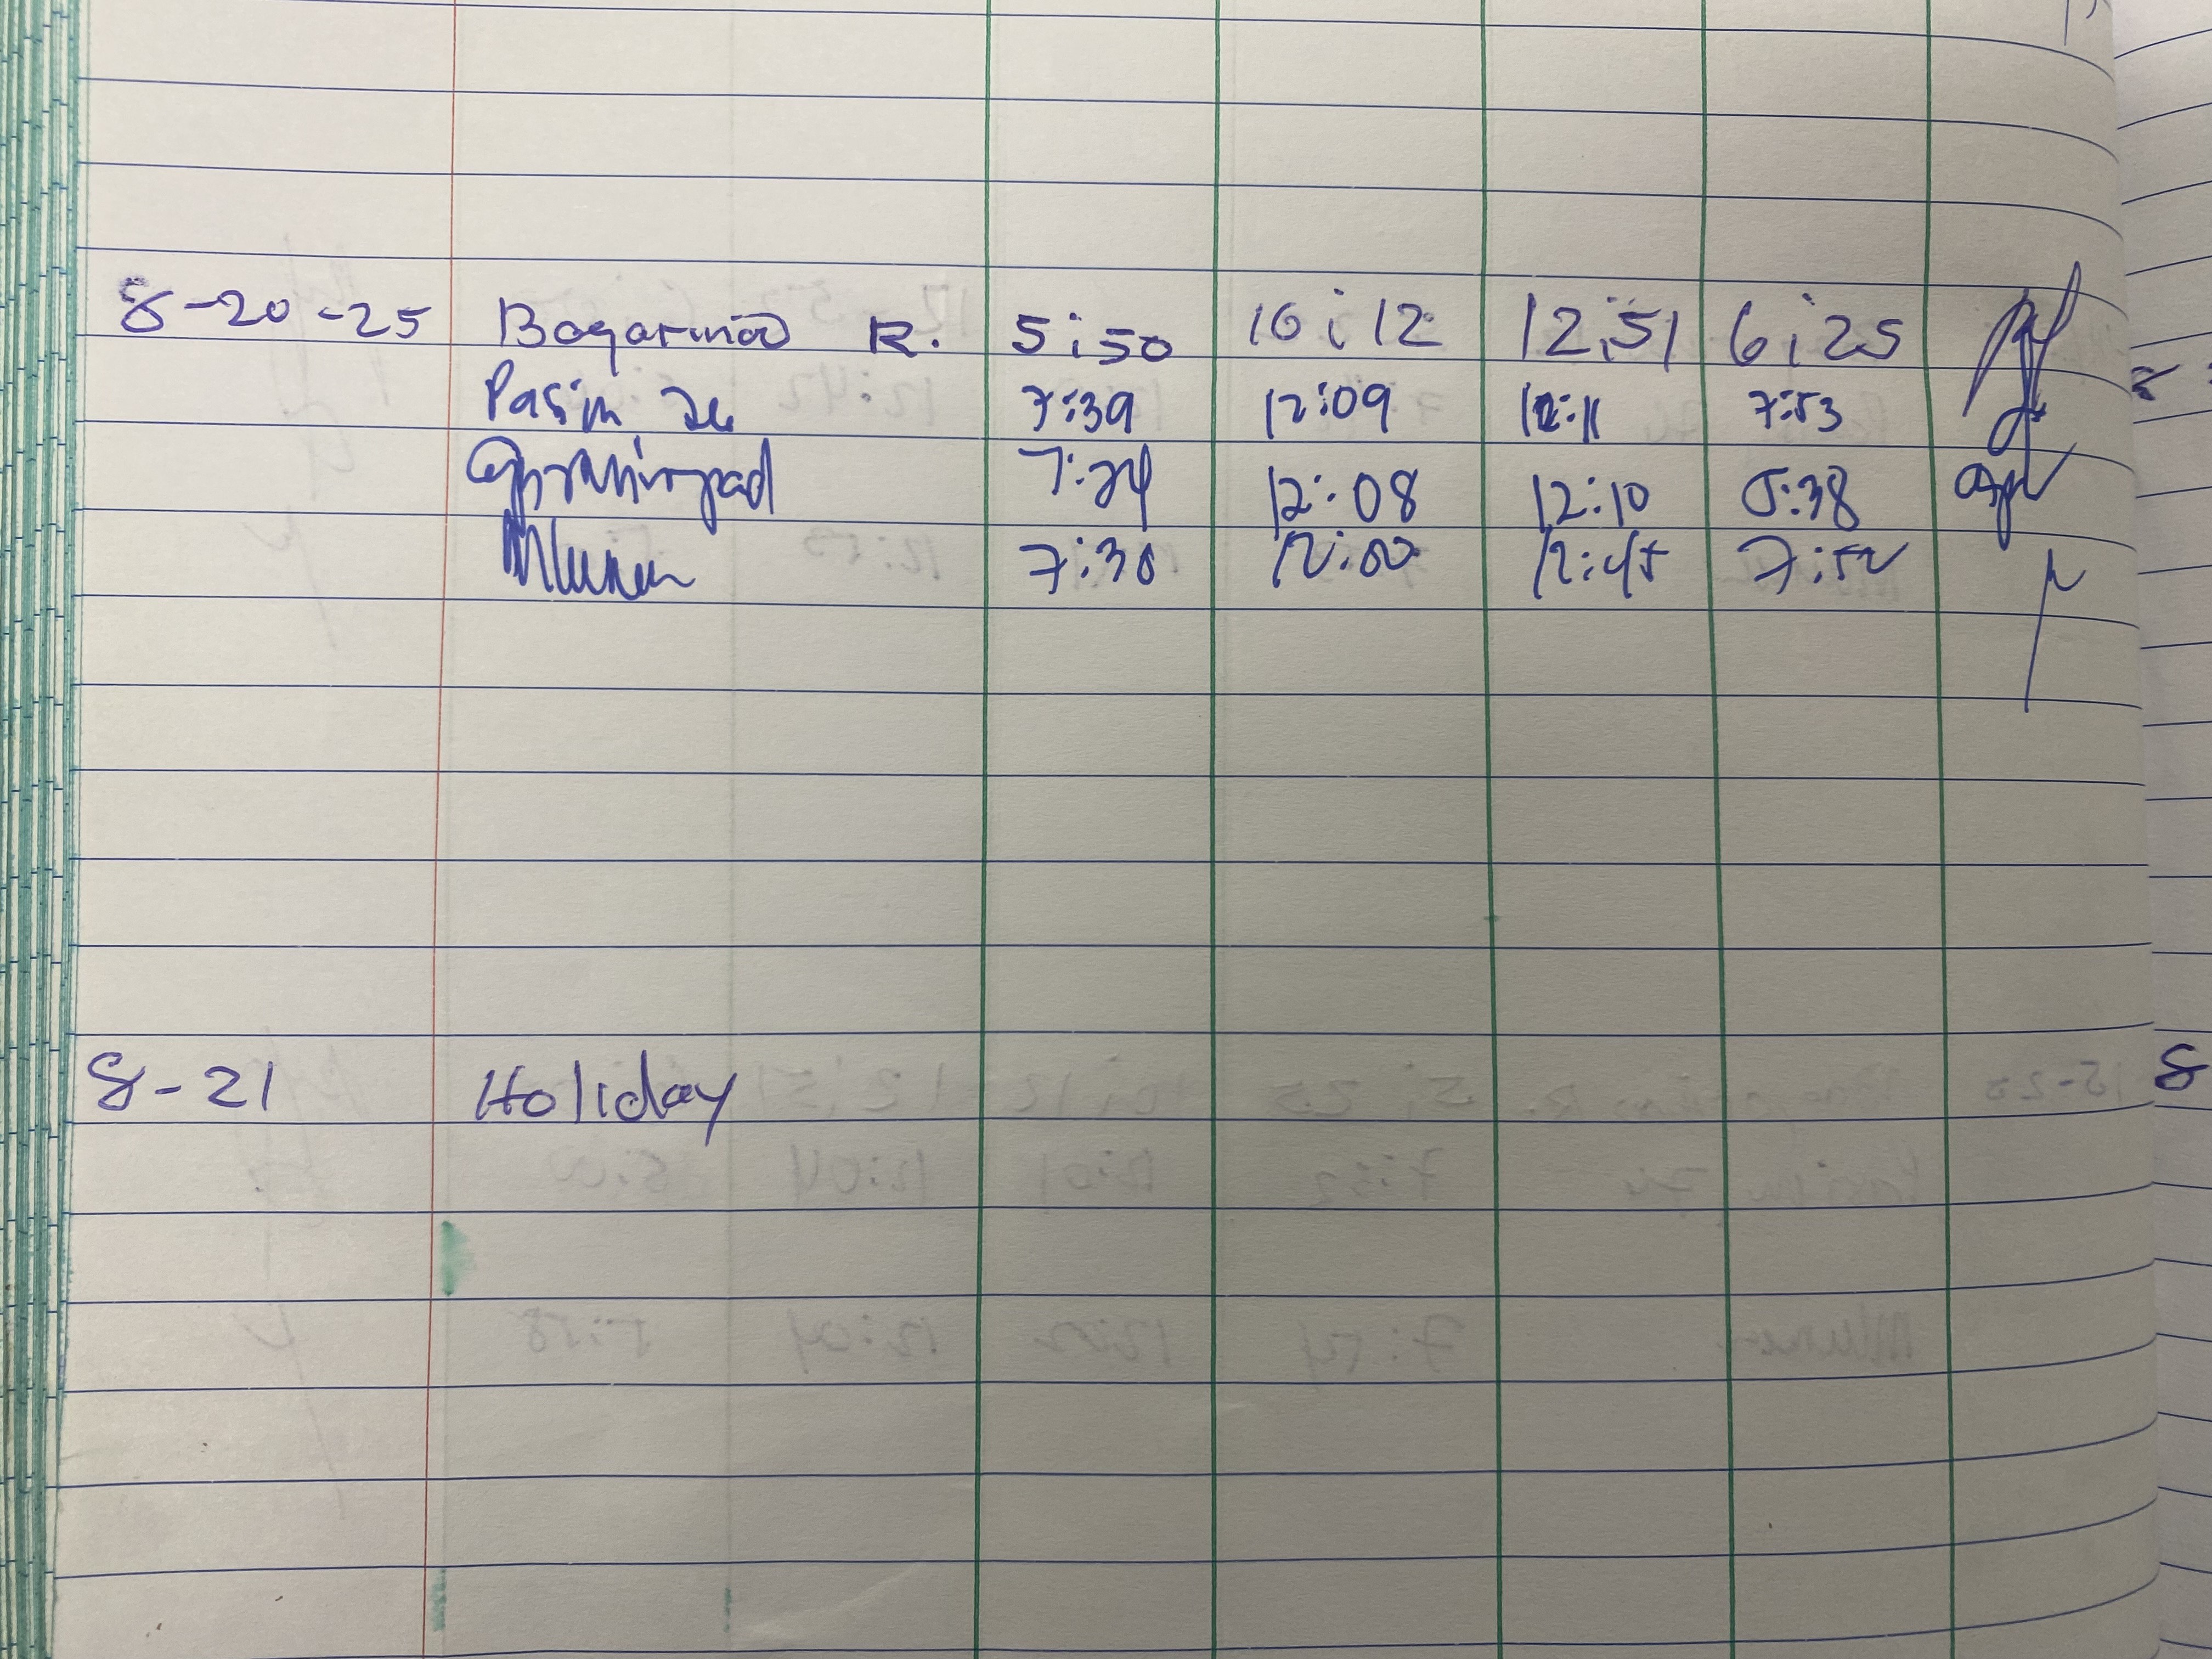 8-20-25 Bagarinao R. 5:50 10:12 12:51 6:25
Pasin, Ze 7:39 12:09 12:11 7:53
7:24 12:08 12:10 5:38
7:30 12:00 12:45 7:52
8-21 Holiday